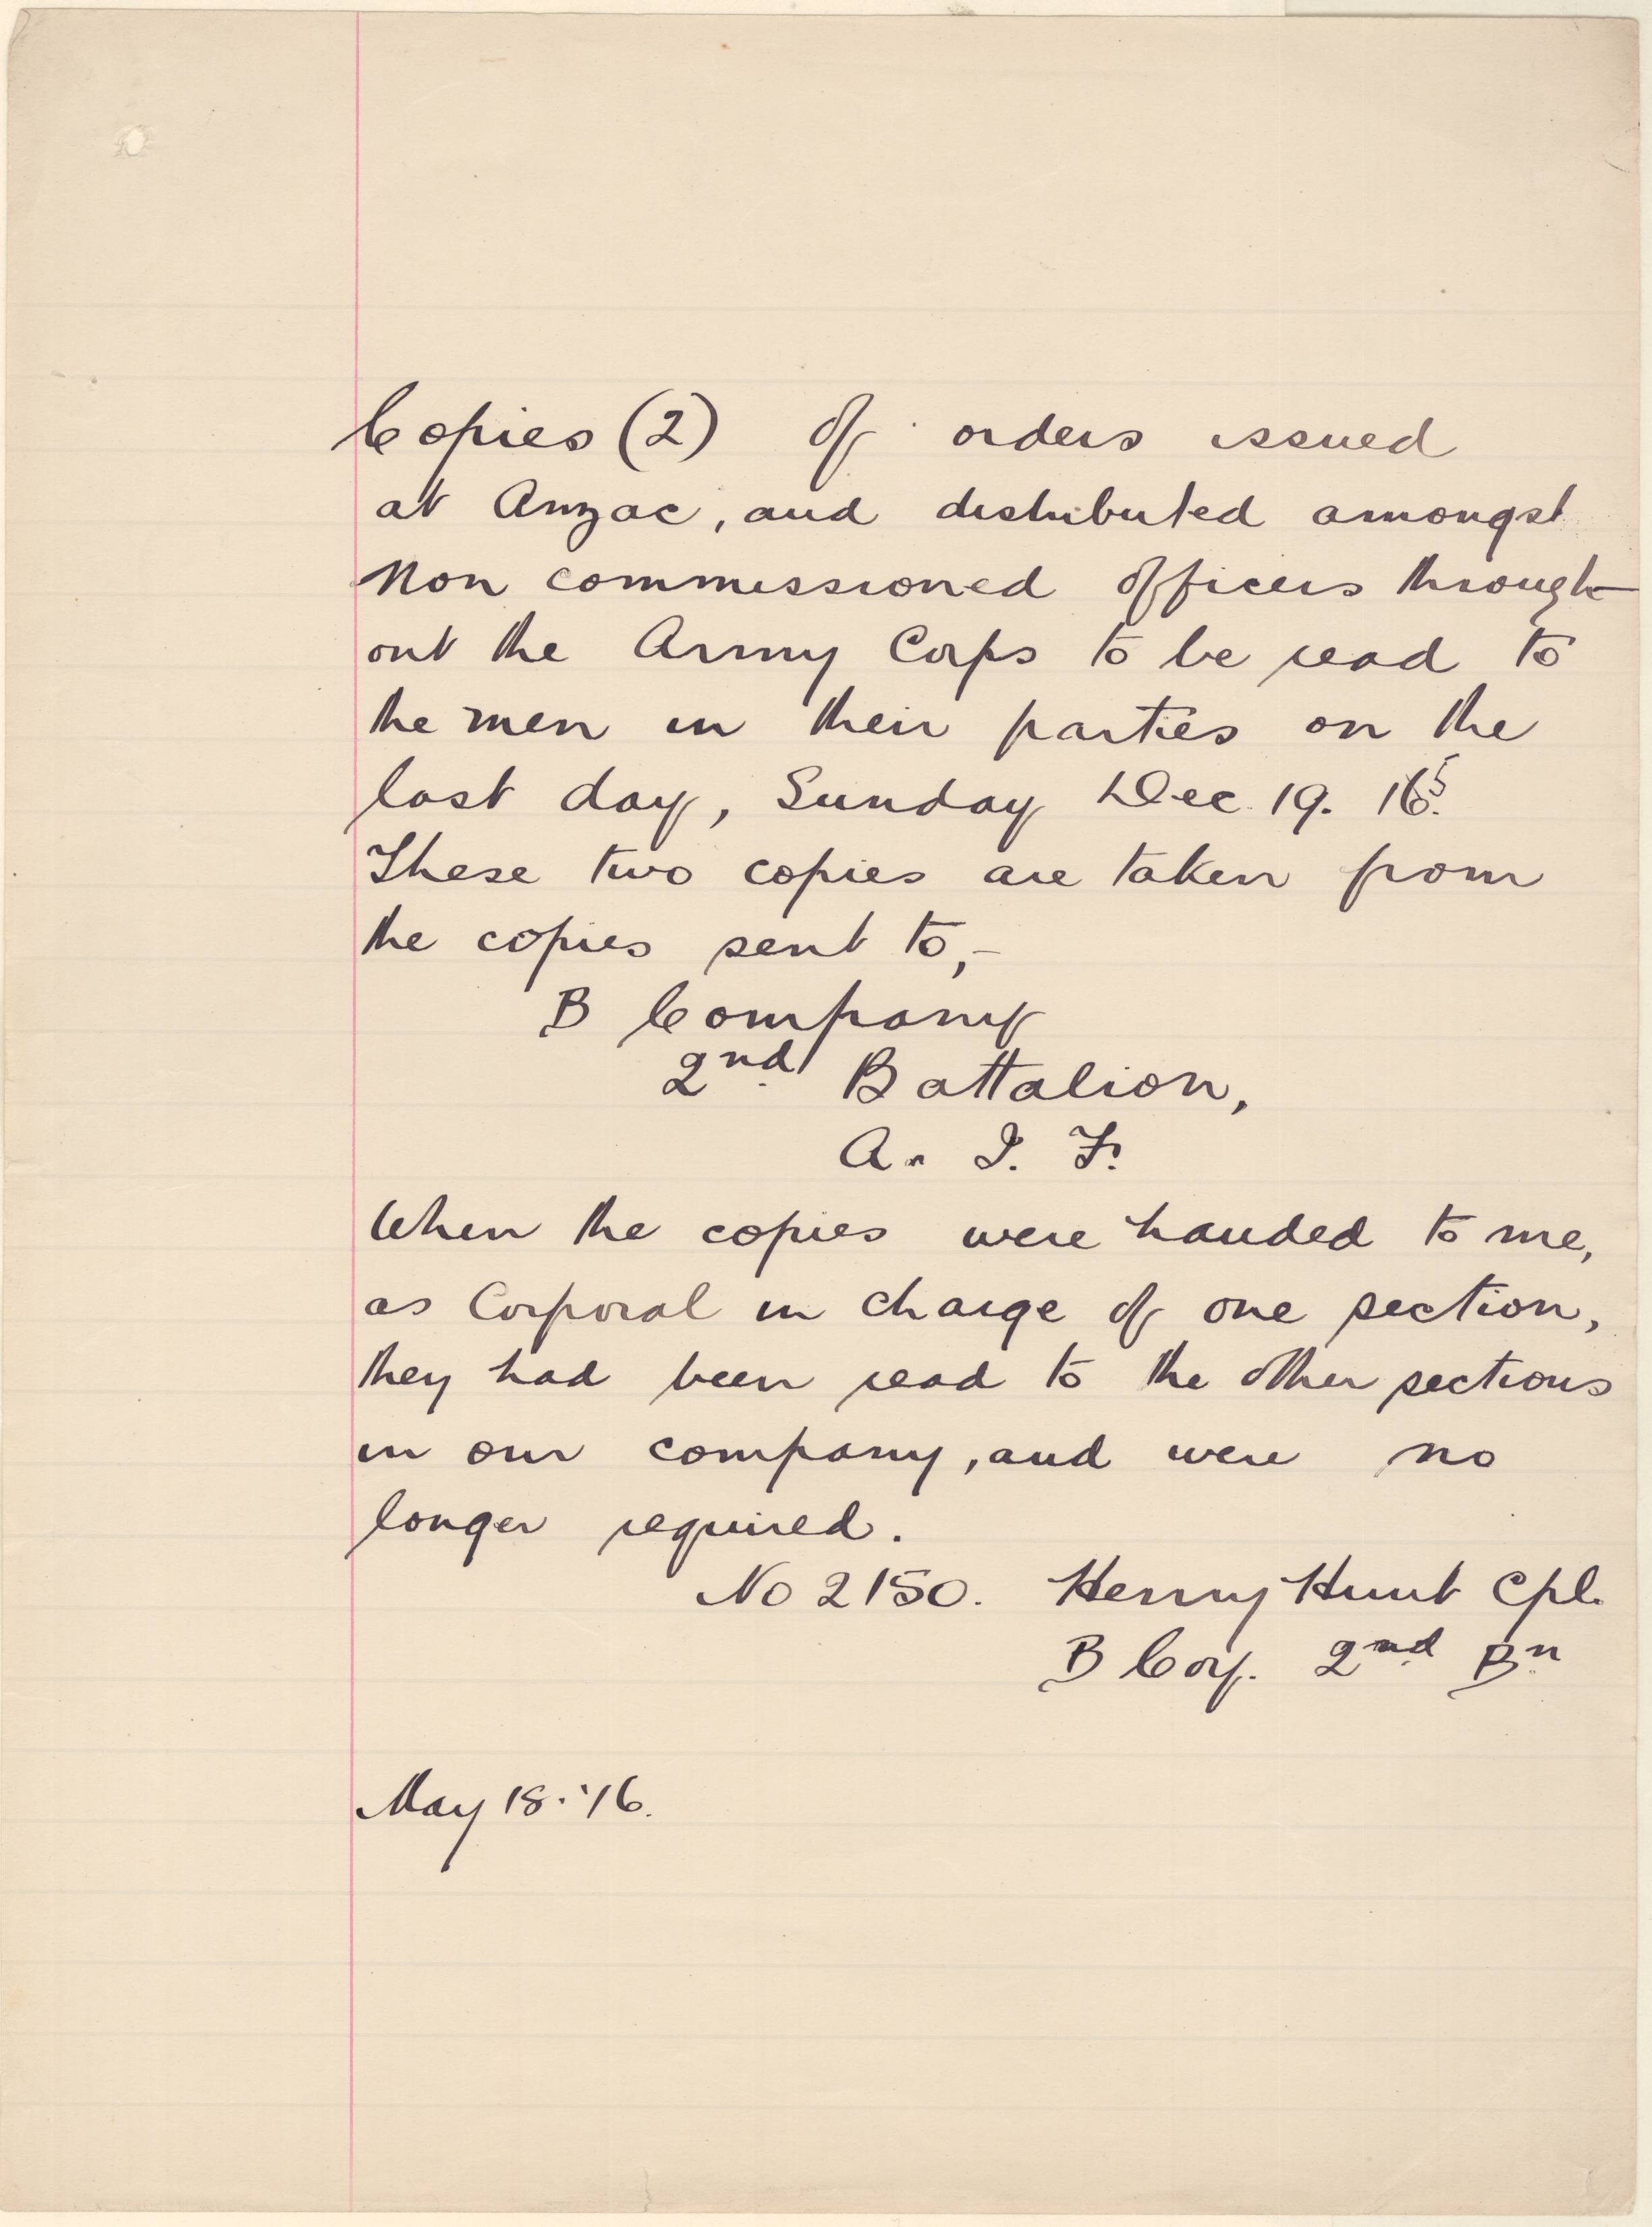 Copies (2) of orders issued
at Anzac, and distributed amongst
Non commissioned officers through-
out the Army Corps to be read to
the men in their parties on the
last day, Sunday Dec. 19. 15.
These two copies are taken from
the copies sent to,-
B Company
2nd Battalion,
A. I. F.
When the copies were handed to me,
as Corporal in charge of one section,
they had been read to the other sections
in our company, and were no
longer required.
No 2150. Henry Hunt Cpl.
B Coy. 2nd Bn
May 18. '16.